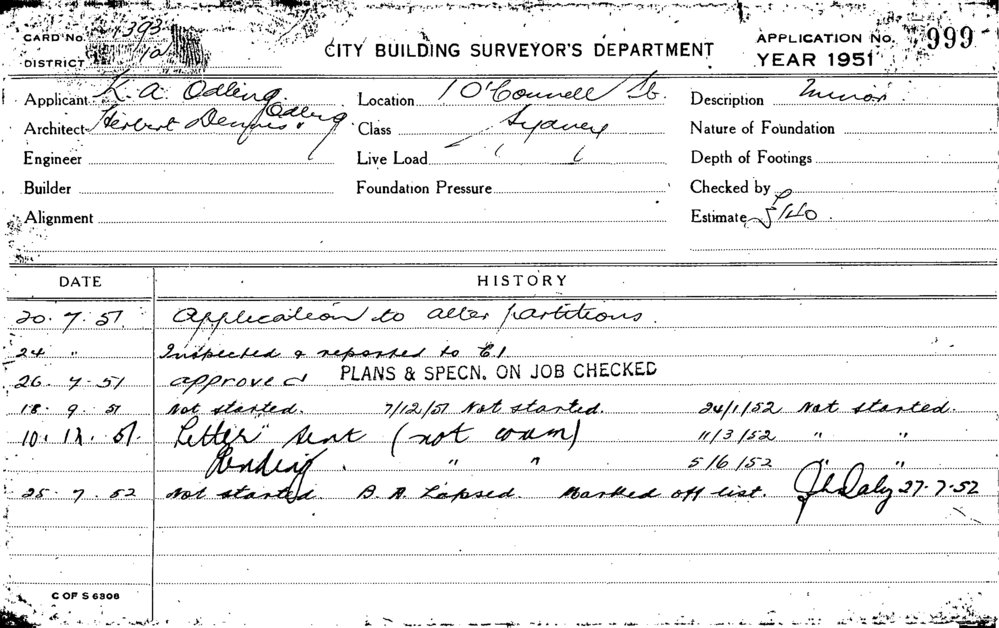 CARD No. 1393
CITY BUILDING SURVEYOR'S DEPARTMENT
APPLICATION No. 999
DISTRICT 10
YEAR 1951
Applicant K. A. Odling Location 1 O'Connell St. Description Minor
Architect Herbert Dennis Odling Class Sydney Nature of Foundation
Engineer Live Load Depth of Footings
Builder Foundation Pressure Checked by
Alignment Estimate £140
DATE HISTORY
20. 7. 51. Application to alter partitions.
24 " Inspected & reported to C1
26. 7. 51 approved PLANS & SPECN. ON JOB CHECKED
18. 9. 51 Not started. 7/12/51 Not started. 24/1/52 Not started.
10. 12. 51. Letter sent (not com) 11/3/52 " "
Pending. " " 5/6/52 " "
25. 7. 52 Not started. B.A. Lapsed. Marked off list. Daly 27.7.52
C OF S 6306